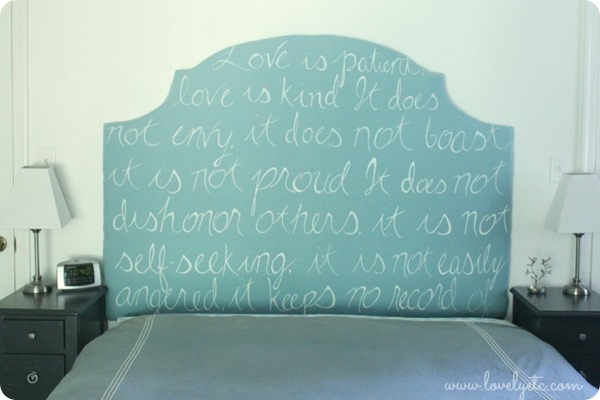 Love is patient,
love is kind It does
not envy, it does not boast
it is not proud It does not
dishonor others, it is not
self-seeking, it is not easily
angered it keeps no record of
10:40
www.lovelyetc.com